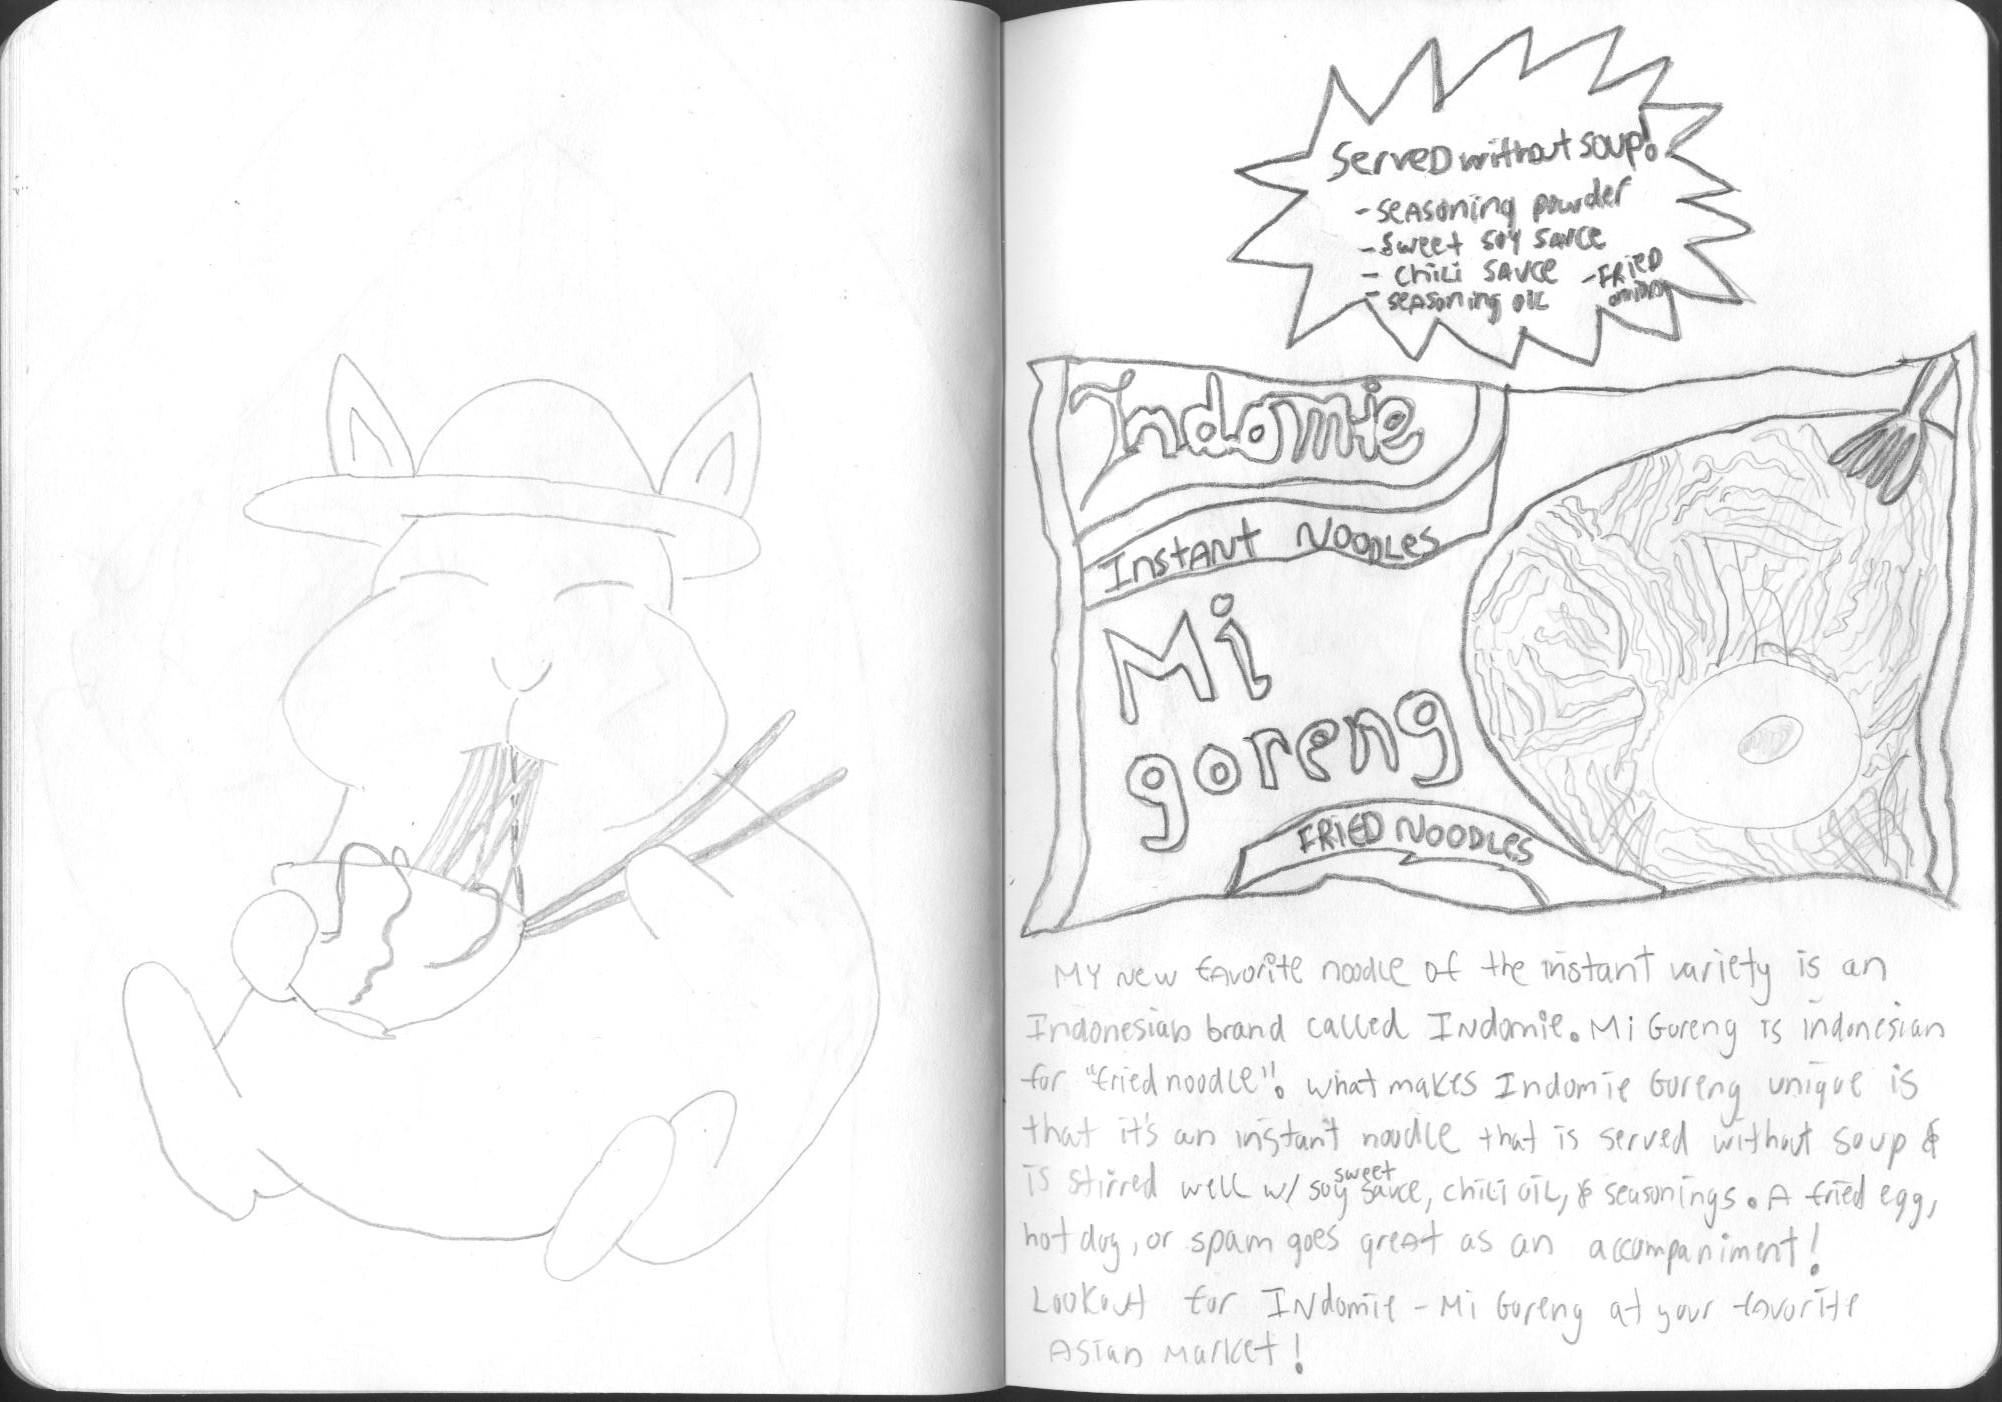 Served without soup!
- seasoning powder
- sweet soy sauce
- chili sauce - Fried
- seasoning oil onion
Indomie
Instant Noodles
Mi
goreng
Fried Noodles
My new favorite noodle of the instant variety is an
Indonesian brand called Indomie. Mi Goreng is indonesian
for "fried noodle". What makes Indomie Goreng unique is
that it's an instant noodle that is served without soup &
is stirred well w/ soy sweet sauce, chili oil, & seasonings. A fried egg,
hot dog, or spam goes great as an accompaniment!
Lookout for Indomie - Mi Goreng at your favorite
Asian Market!